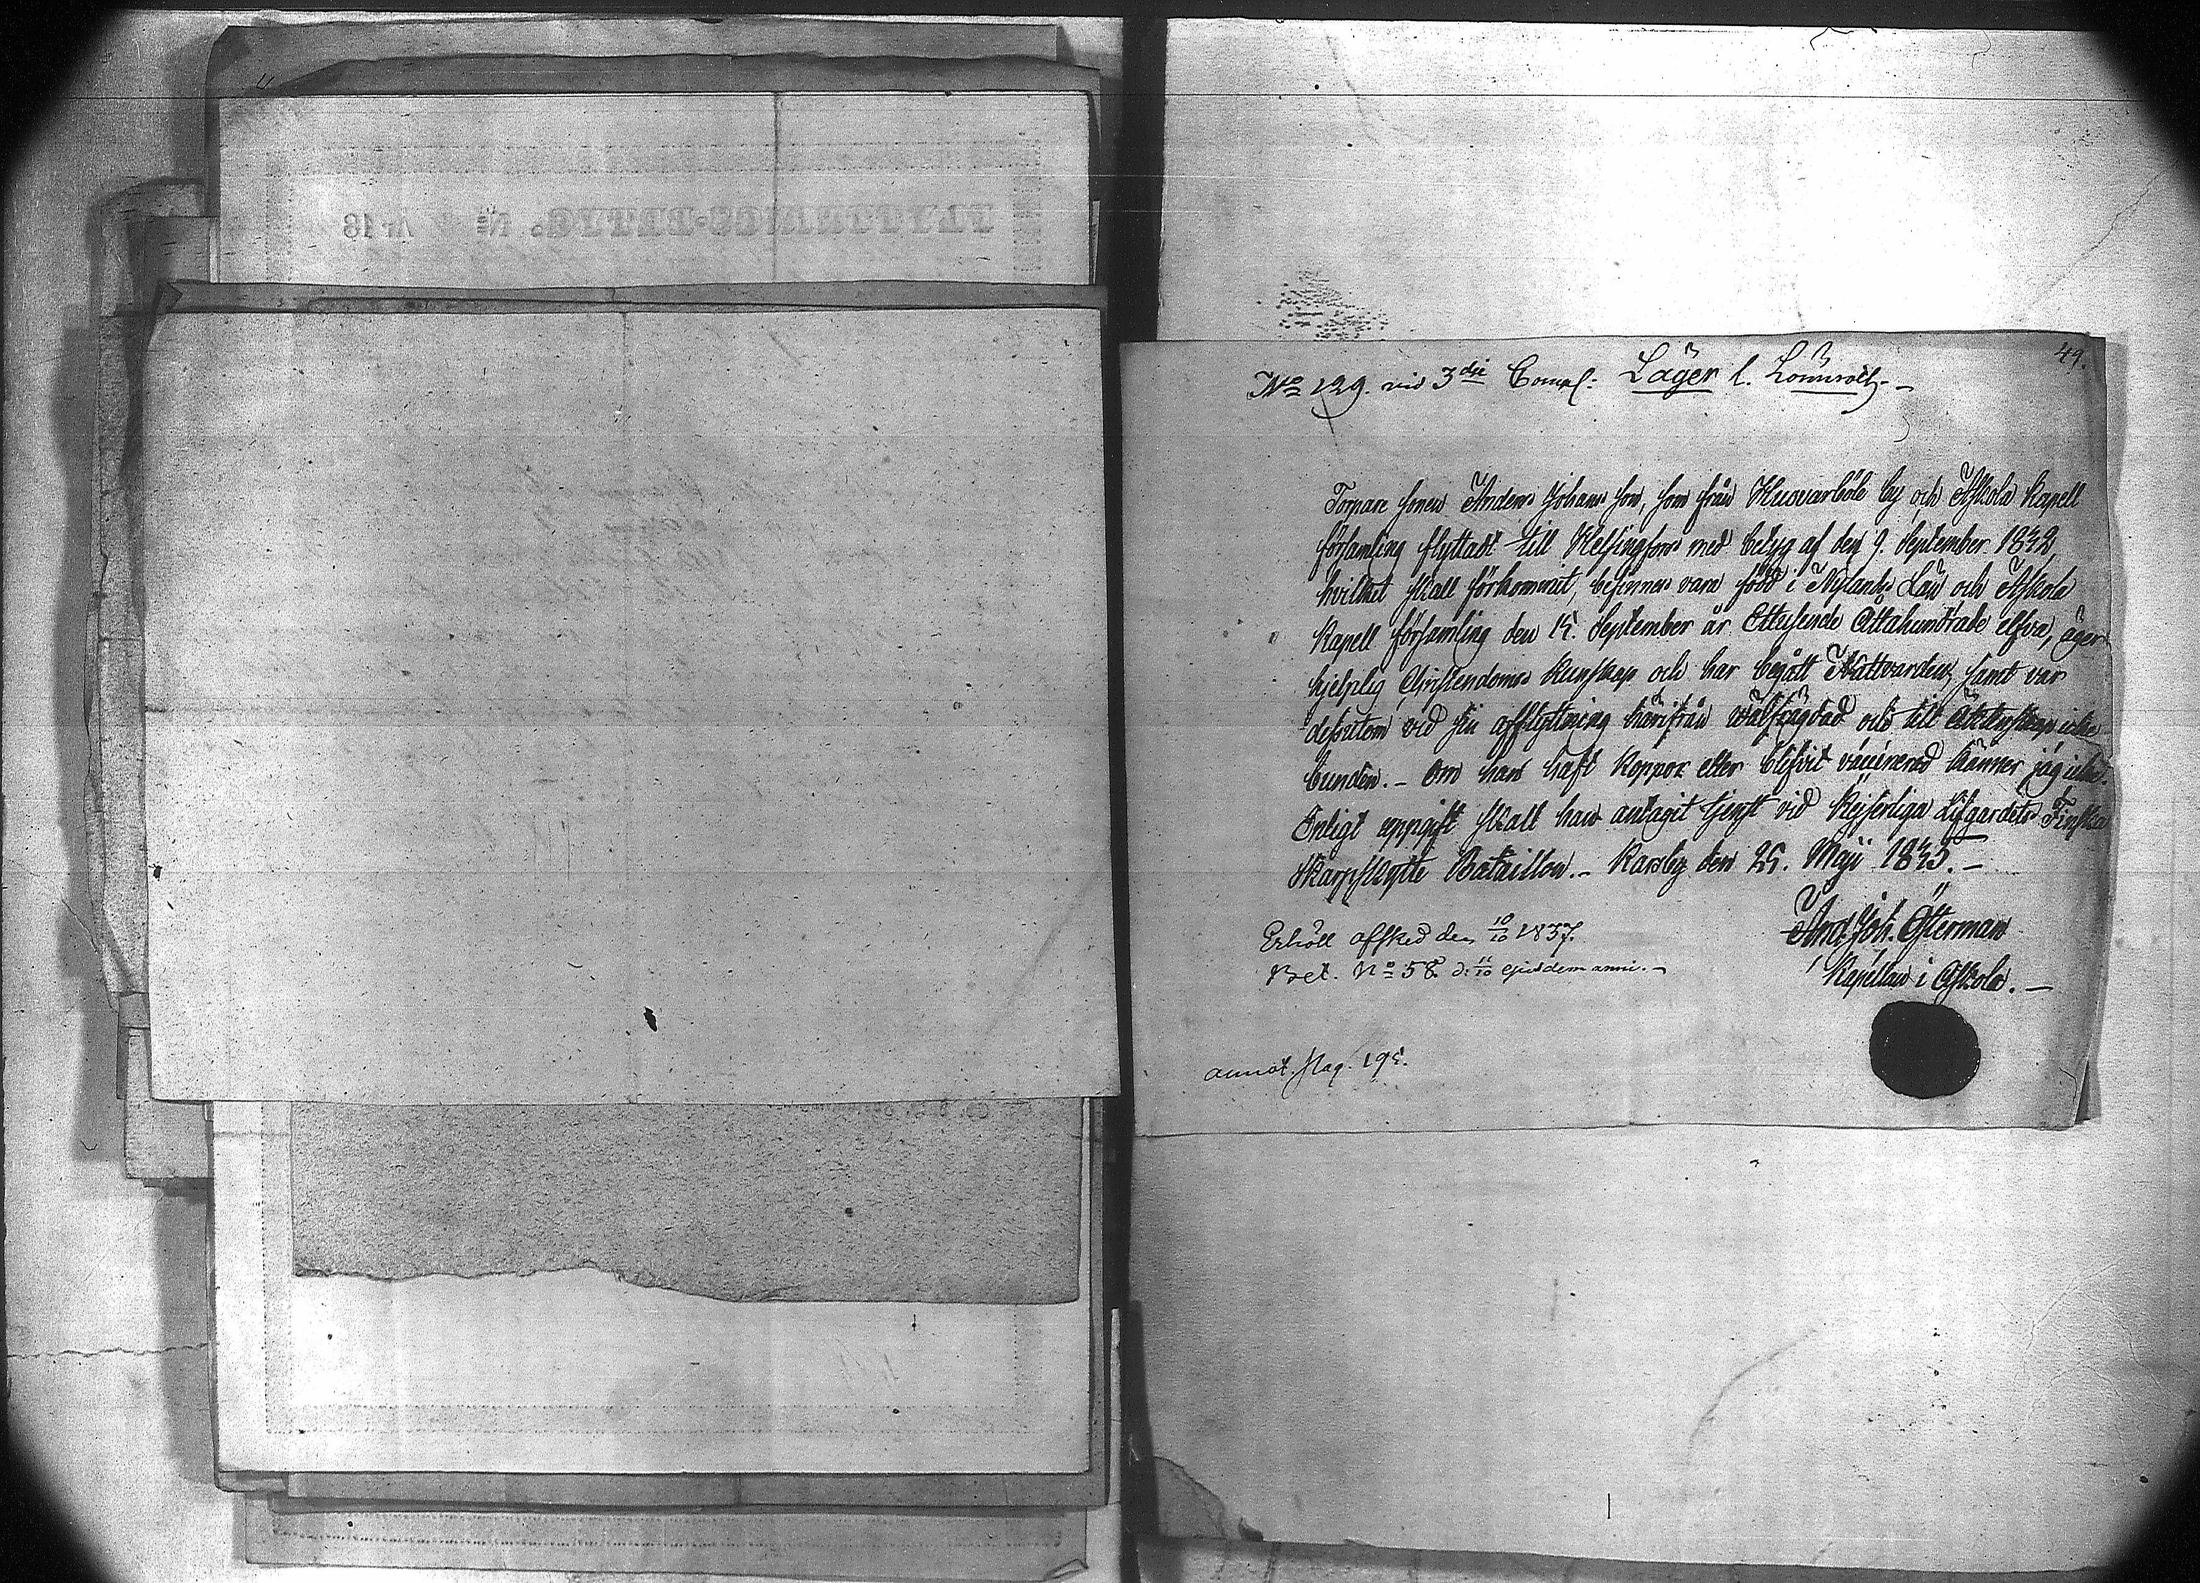 49.
No 129. vid 3die Comp: Läger l. Lönnroth.-
Torpare sonen Anders Johans son, som från Huuvarböle by och Askola Kapell
församling flyttadt till Helsingfors med betyg af den 9. September 1832,
hvilket skall förkommit, befinnes vara född i Nylands Län och Askola
Kapell församling den 15. September år Ettusende Åttahundrade elfva, äger
hjelplig Christendoms kunskap och har begått Nattvarden, samt var
dessutom vid sin afflyttning härifrån välfrägdad och till äktenskap icke
bunden.- Om han haft koppor eller blifvit vaccinerad känner jag icke.
Enligt uppgift skall han antagit tjenst vid Kejserliga Lifgardets Finska
Skarpskytte Bataillon.- Karsby den 25. Maji 1835.-
And. Joh. Österman
Kapellan i Askola.-
Erhöll afsked den 10/10 1837.
Bet. No 58 d: 11/10 ejusdem anni.-
annot. pag. 195.
FLYTTNINGS-BETYG. No År 18